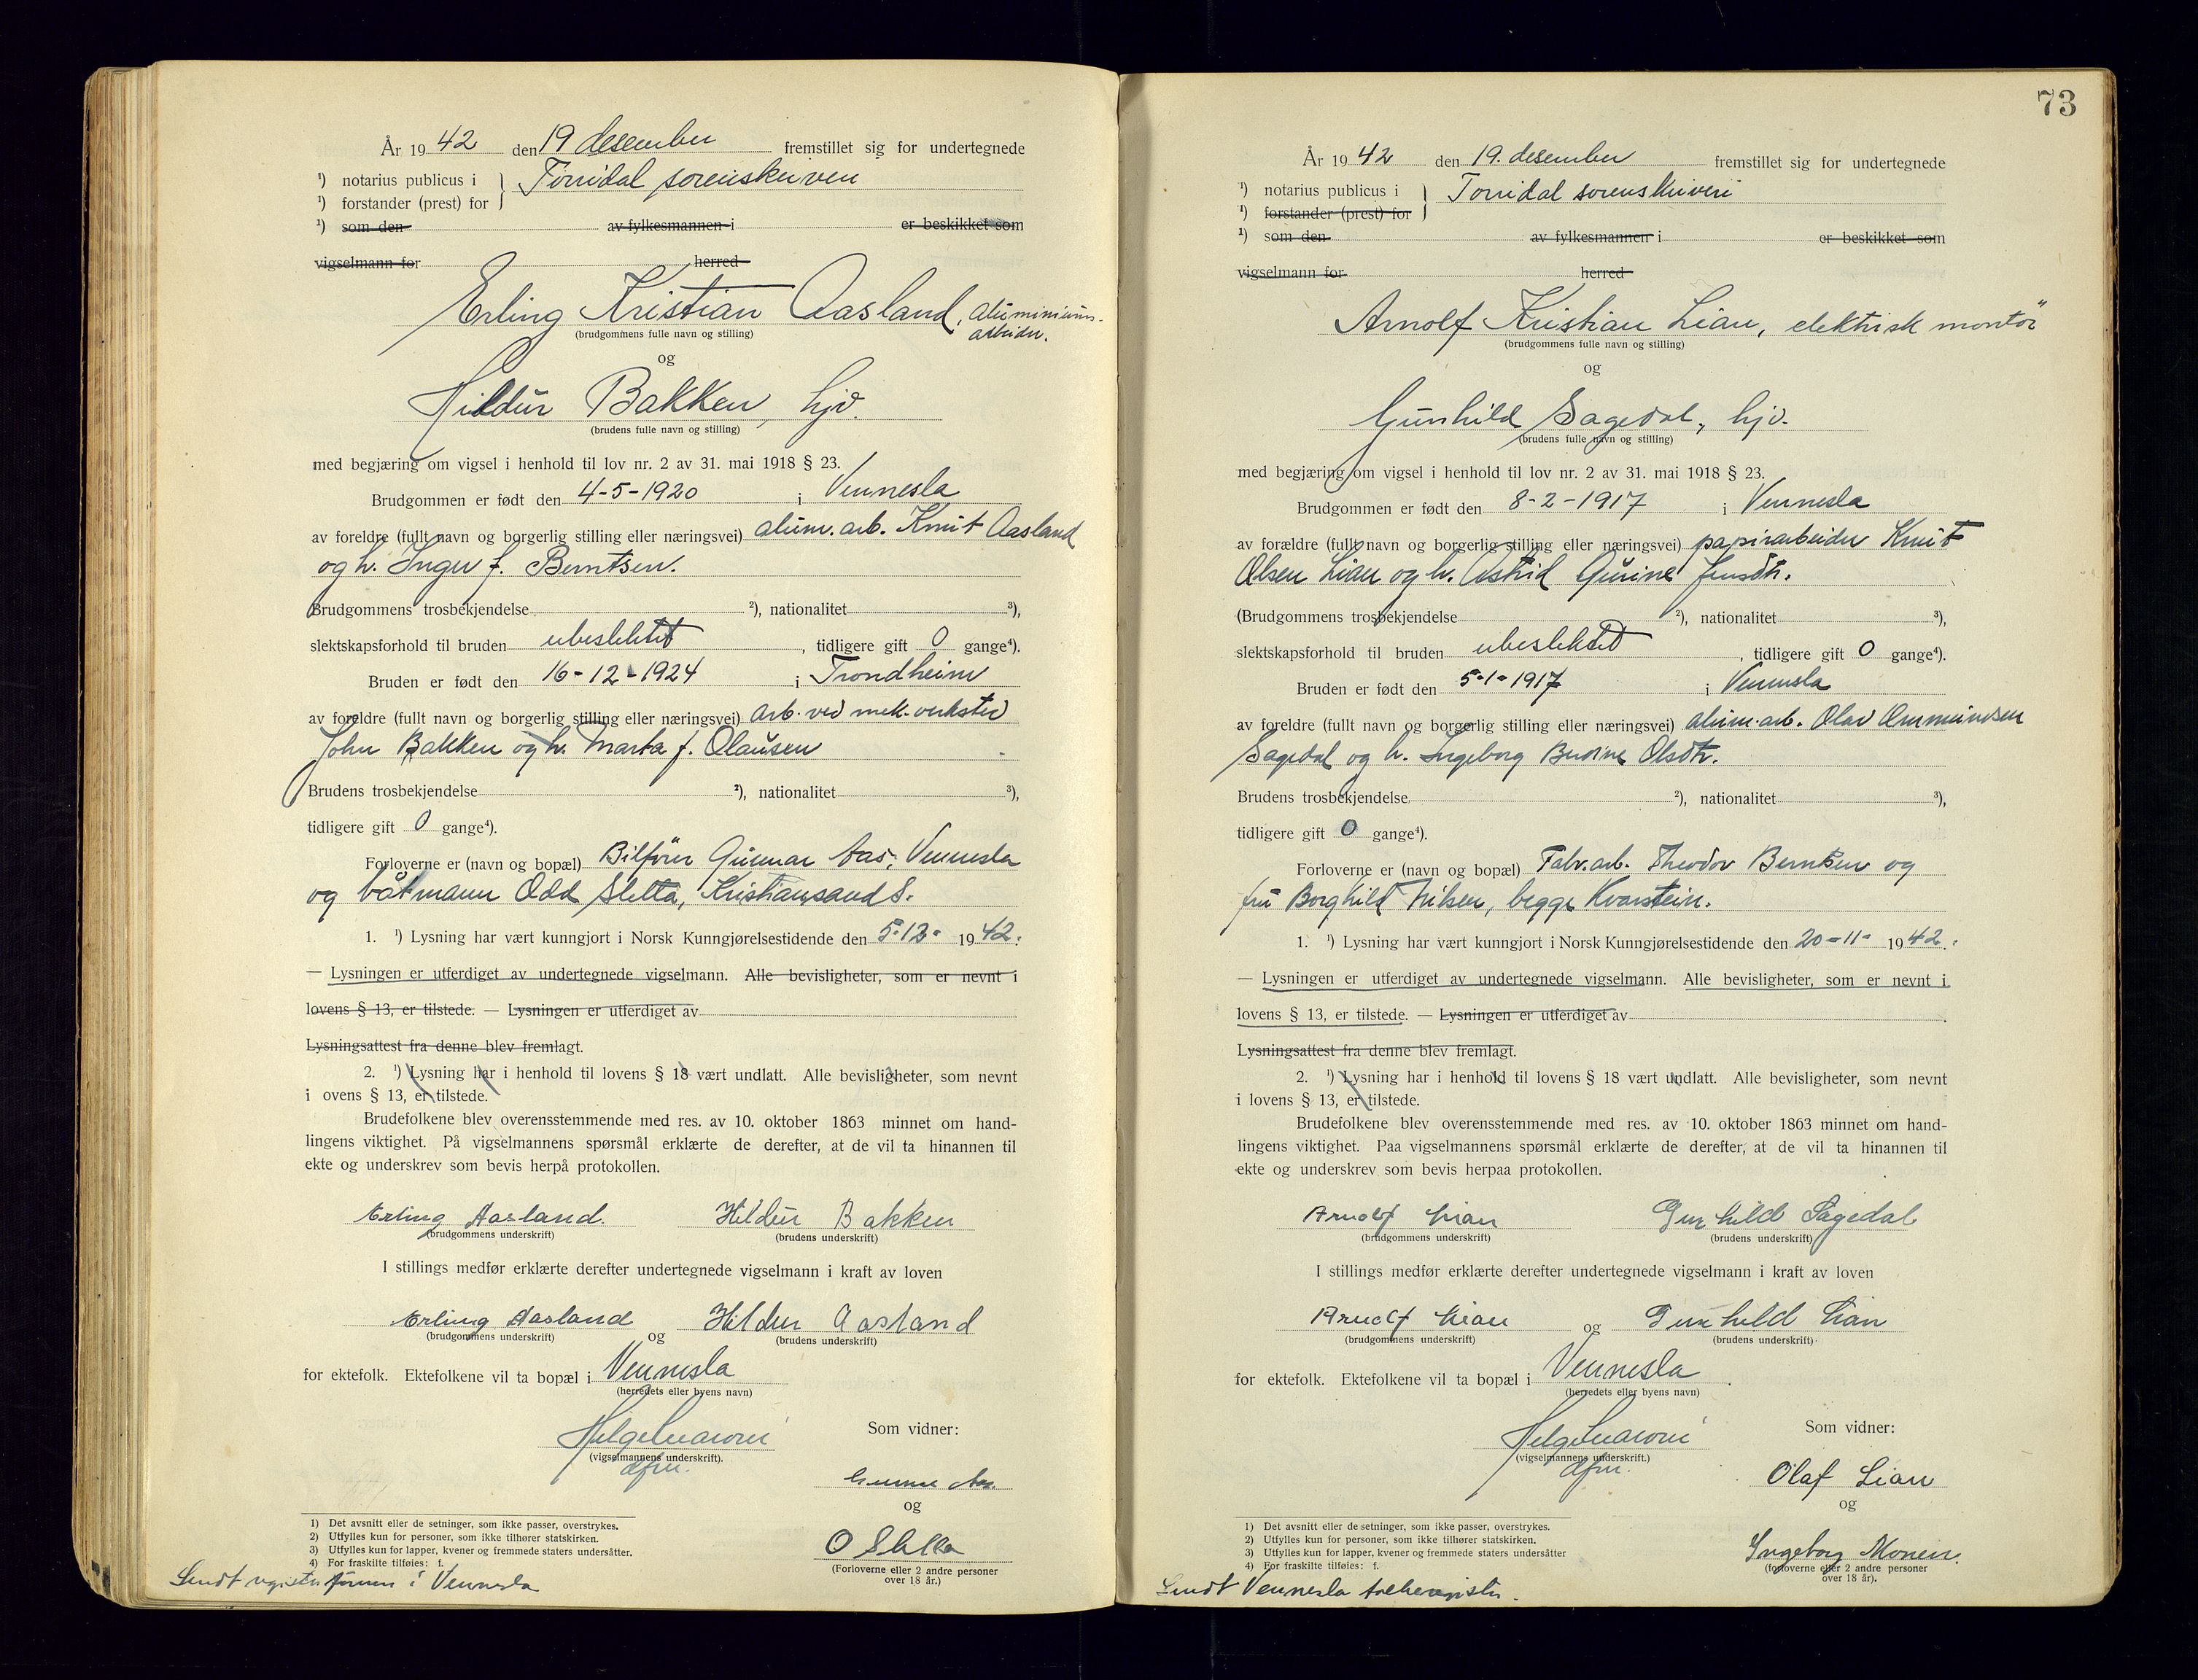 År 1942 den 19 desember fremstillet sig for undertegnede
¹) notarius publicus i } Torridal sorenskriveri
¹) forstander (prest) for
¹) som den av fylkesmannen i er beskikket som
vigselmann for herred
Erling Kristian Aasland, aluminiums-
arbeider.
(brudgommens fulle navn og stilling)
og
Hildur Bakken, hjv.
(brudens fulle navn og stilling)
med begjæring om vigsel i henhold til lov nr. 2 av 31. mai 1918 § 23.
Brudgommen er født den 4-5-1920 i Vennesla
av foreldre (fullt navn og borgerlig stilling eller næringsvei) alum. arb. Knut Aasland
og h. Inger f. Berntsen.
Brudgommens trosbekjendelse ²), nationalitet ³),
slektskapsforhold til bruden ubeslektet, tidligere gift 0 gange⁴).
Bruden er født den 16-12-1924 i Trondheim
av foreldre (fullt navn og borgerlig stilling eller næringsvei) arb. ved mek. verksted
John Bakken og h. Marta f. Olausen
Brudens trosbekjendelse ²), nationalitet ³),
tidligere gift 0 gange⁴).
Forloverne er (navn og bopæl) Bilfører Gunnar Aas, Vennesla
og båtmann Odd Sletta, Kristiansand S.
1. ¹) Lysning har vært kunngjort i Norsk Kunngjørelsestidende den 5.12- 1942.
— Lysningen er utferdiget av undertegnede vigselmann. Alle bevisligheter, som er nevnt i
lovens § 13, er tilstede. — Lysningen er utferdiget av
Lysningsattest fra denne blev fremlagt.
2. ¹) Lysning har i henhold til lovens § 18 vært undlatt. Alle bevisligheter, som nevnt
i ovens § 13, er tilstede.
Brudefolkene blev overensstemmende med res. av 10. oktober 1863 minnet om hand-
lingens viktighet. På vigselmannens spørsmål erklærte de derefter, at de vil ta hinannen til
ekte og underskrev som bevis herpå protokollen.
Erling Aasland. Hildur Bakken
(brudgommens underskrift) (brudens underskrift)
I stillings medfør erklærte derefter undertegnede vigselmann i kraft av loven
Erling Aasland og Hildur Aasland
(brudgommens underskrift) (brudens underskrift)
for ektefolk. Ektefolkene vil ta bopæl i Vennesla
(herredets eller byens navn)
Som vidner:
(vigselmannens underskrift).
dfm.
Gunnar Aas.
og
O Sletta
(Forloverne eller 2 andre personer
over 18 år.)
1) Det avsnitt eller de setninger, som ikke passer, overstrykes.
2) Utfylles kun for personer, som ikke tilhører statskirken.
3) Utfylles kun for lapper, kvener og fremmede staters undersåtter.
4) For fraskilte tilføies: f.
Sendt registerføreren i Vennesla
73
År 1942 den 19. desember fremstillet sig for undertegnede
¹) notarius publicus i } Torridal sorenskriveri
¹) forstander (prest) for
¹) som den av fylkesmannen i er beskikket som
vigselmann for herred
Arnolf Kristian Lian, elektrisk montør
(brudgommens fulle navn og stilling)
og
Gunhild Sagedal, hjv.
(brudens fulle navn og stilling)
med begjæring om vigsel i henhold til lov nr. 2 av 31. mai 1918 § 23.
Brudgommen er født den 8-2-1917 i Vennesla
av forældre (fullt navn og borgerlig stilling eller næringsvei) papirarbeider Knut
Olsen Lian og h. Astrid Gurine Jensdtr.
(Brudgommens trosbekjendelse ²), nationalitet ³),
slektskapsforhold til bruden ubeslektet, tidligere gift 0 gange⁴).
Bruden er født den 5-1-1917 i Vennesla
av foreldre (fullt navn og borgerlig stilling eller næringsvei) alum. arb. Olav Ommundsen
Sagedal og h. Ingeborg Olsdtr.
Brudens trosbekjendelse ²), nationalitet ³),
tidligere gift 0 gange⁴).
Forloverne er (navn og bopæl) Fabr. arb. Theodor Berntsen og
fru Borghild Nilsen, begge Kvarstein.
1. ¹) Lysning har vært kunngjort i Norsk Kunngjørelsestidende den 20-11- 1942.
— Lysningen er utferdiget av undertegnede vigselmann. Alle bevisligheter, som er nevnt i
lovens § 13, er tilstede. — Lysningen er utferdiget av
Lysningsattest fra denne blev fremlagt.
2. ¹) Lysning har i henhold til lovens § 18 vært undlatt. Alle bevisligheter, som nevnt
i lovens § 13, er tilstede.
Brudefolkene blev overensstemmende med res. av 10. oktober 1863 minnet om hand-
lingens viktighet. Paa vigselmannens spørsmål erklærte de derefter, at de vil ta hinannen til
ekte og underskrev som bevis herpaa protokollen.
Arnolf Lian Gunhild Sagedal
(brudgommens underskrift) (brudens underskrift)
I stillings medfør erklærte derefter undertegnede vigselmann i kraft av loven
Arnolf Lian og Gunhild Lian
(brudgommens underskrift) (brudens underskrift)
for ektefolk. Ektefolkene vil ta bopæl i Vennesla.
(herredets eller byens navn)
Som vidner:
(vigselmannens underskrift.)
dfm.
Olaf Lian
og
Ingeborg Monen.
(forloverne eller 2 andre personer
over 18 år).
1) Det avsnitt eller de setninger, som ikke passer, overstrykes.
2) Utfylles kun for personer, som ikke tilhører statskirken.
3) Utfylles kun for lapper, kvener og fremmede staters undersåtter
4) For fraskilte tilføies: f.
Sendt Vennesla folkeregister.